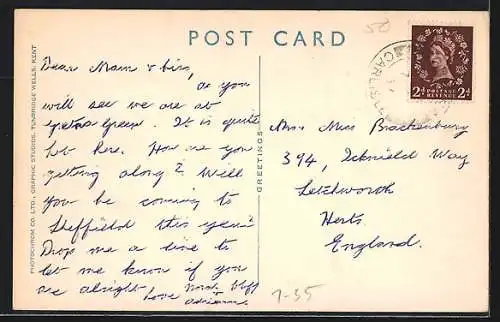 POST CARD
50
PHOTOCHROM CO. LTD., GRAPHIC STUDIOS, TUNBRIDGE WELLS, KENT
Dear Mam & , as you
will see we are at
Gretna Green. It is quite
hot here. How are you
getting along? Will
you be coming to
Sheffield this year?
Drop me a line to
let me know if you
are alright
love
GREETINGS
CARLISLE
2d POSTAGE REVENUE 2d
Mrs & Miss Brackenbury
394, Icknield Way
Letchworth
Herts.
England.
7-35